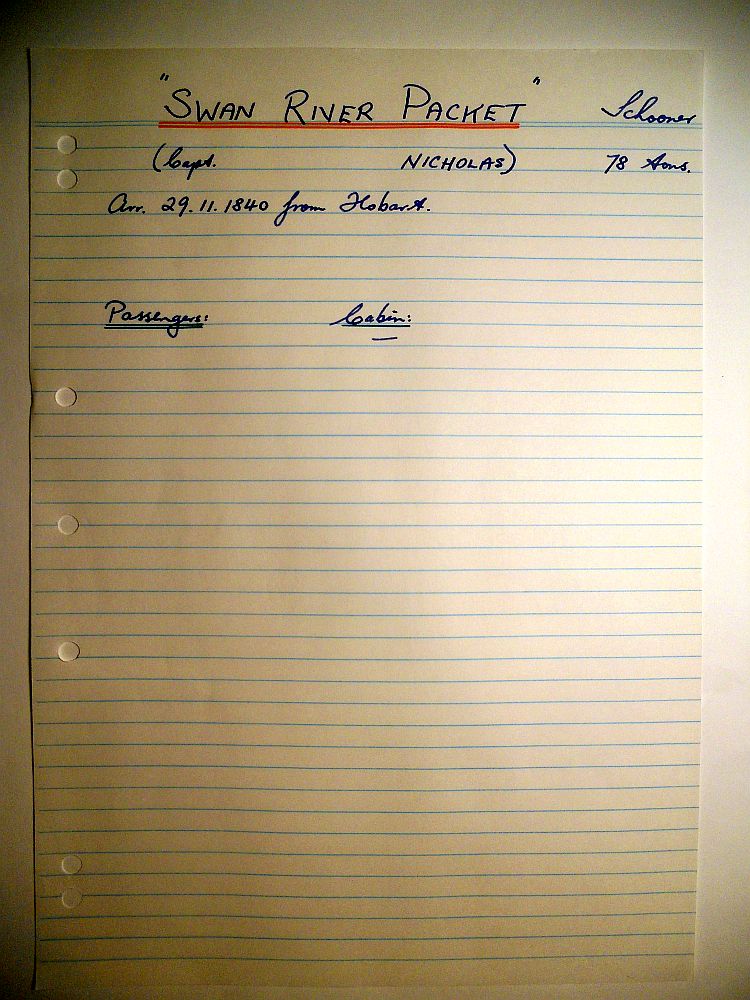 "SWAN RIVER PACKET" Schooner
(Capt. NICHOLAS) 78 tons.
Arr. 29.11.1840 from Hobart.
Passengers: Cabin:
—